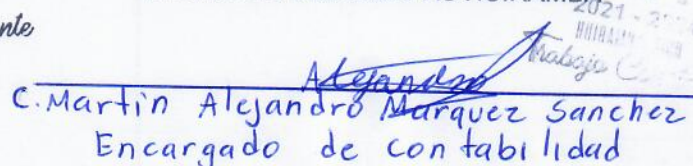 2021 -
nte
Trabajo
Alejandro
C. Martin Alejandro Marquez Sanchez
Encargado de contabilidad